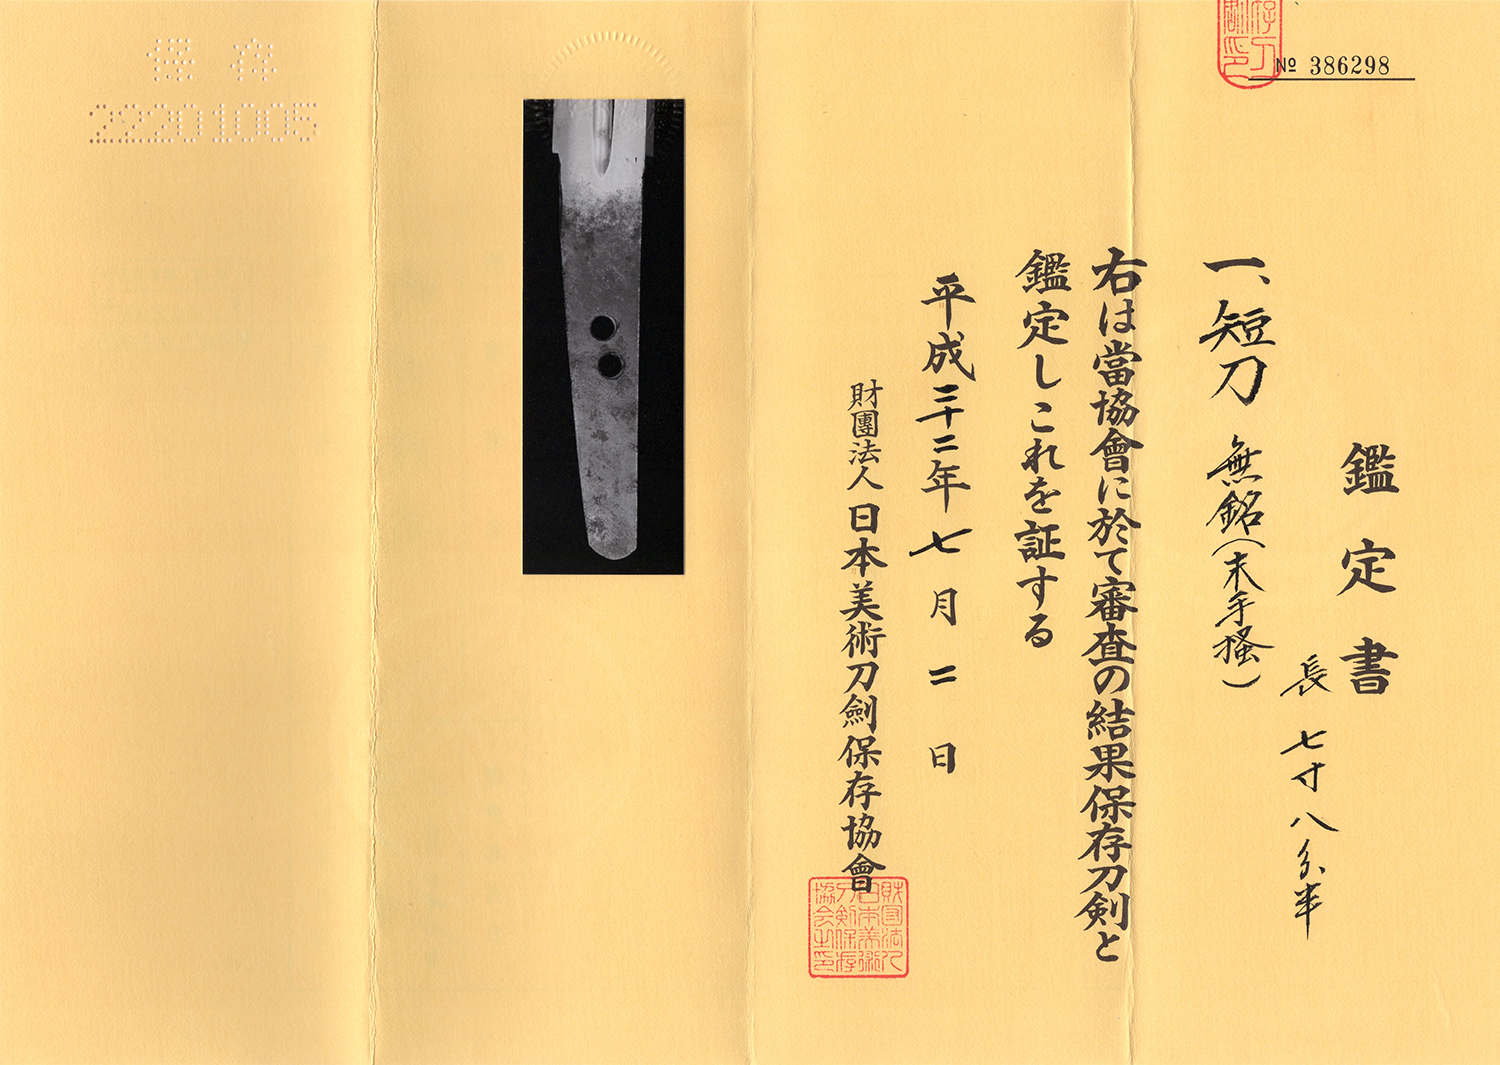 No 386298
鑑定書
長 七寸八分半
一、短刀 無銘(末手搔)
右は當協會に於て審査の結果保存刀剣と
鑑定しこれを証する
平成二十二年七月二日
財團法人 日本美術刀劍保存協會
財団法人
日本美術
刀剣保存
協会之印
保存
22201005